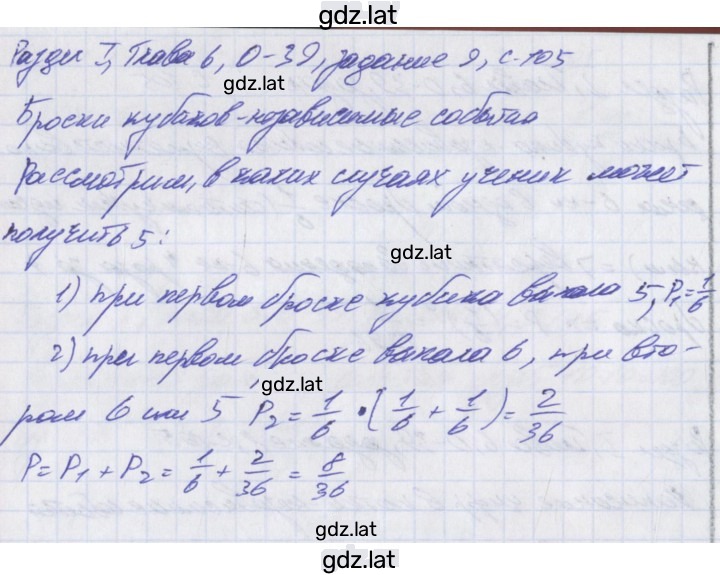 gdz.lat
Раздел I, Глава 6, О-39, задание 9, с.105
gdz.lat
Броски кубиков - независимые события
Рассмотрим, в каких случаях ученик может
получить 5:
gdz.lat
1) при первом броске кубика выпала 5, P₁=1/6
2) при первом броске выпала 6, при вто-
gdz.lat
ром 6 или 5 P₂ = 1/6 · (1/6 + 1/6) = 2/36
P = P₁ + P₂ = 1/6 + 2/36 = 8/36
gdz.lat
gdz.lat